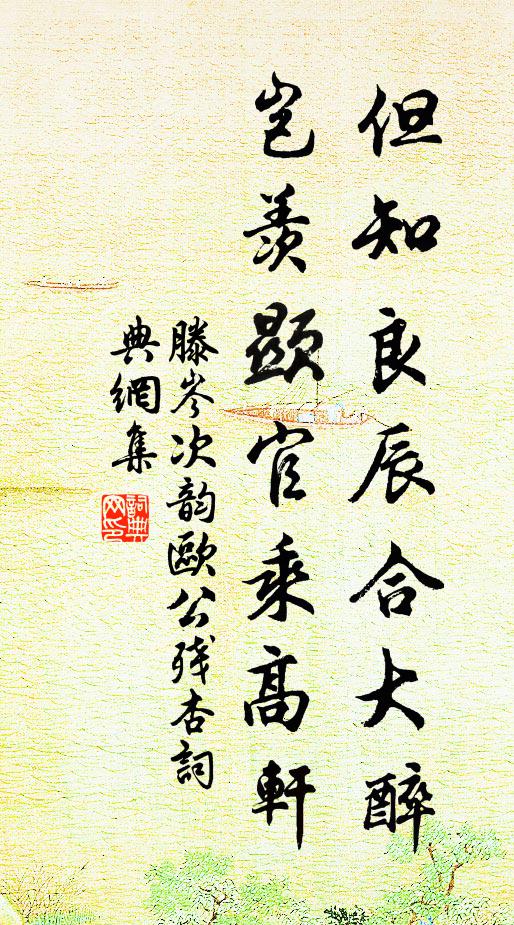 但知良辰合大醉
岂羡顯官乘高軒
滕岑次韵歐公殘杏詞
典網集
詞典網印